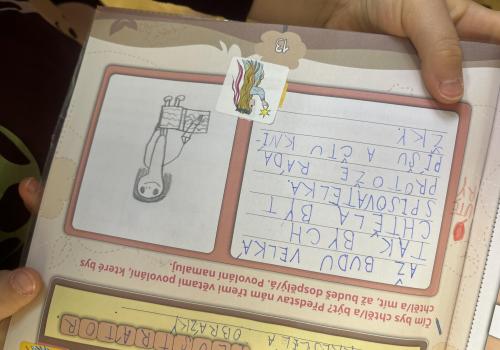 OBRÁZKY
LUSTRATOR
Čím bys chtěl/a být? Představ nám třemi větami povolání, které bys
chtěl/a mít, až budeš dospělý/á. Povolání namaluj.
AŽ BUDU VELKÁ
TAK BYCH
CHTĚLA BÝT
SPISOVATELKA.
PROTOŽE RÁDA
PÍŠU A ČTU KNÍ
ŽKY.
13